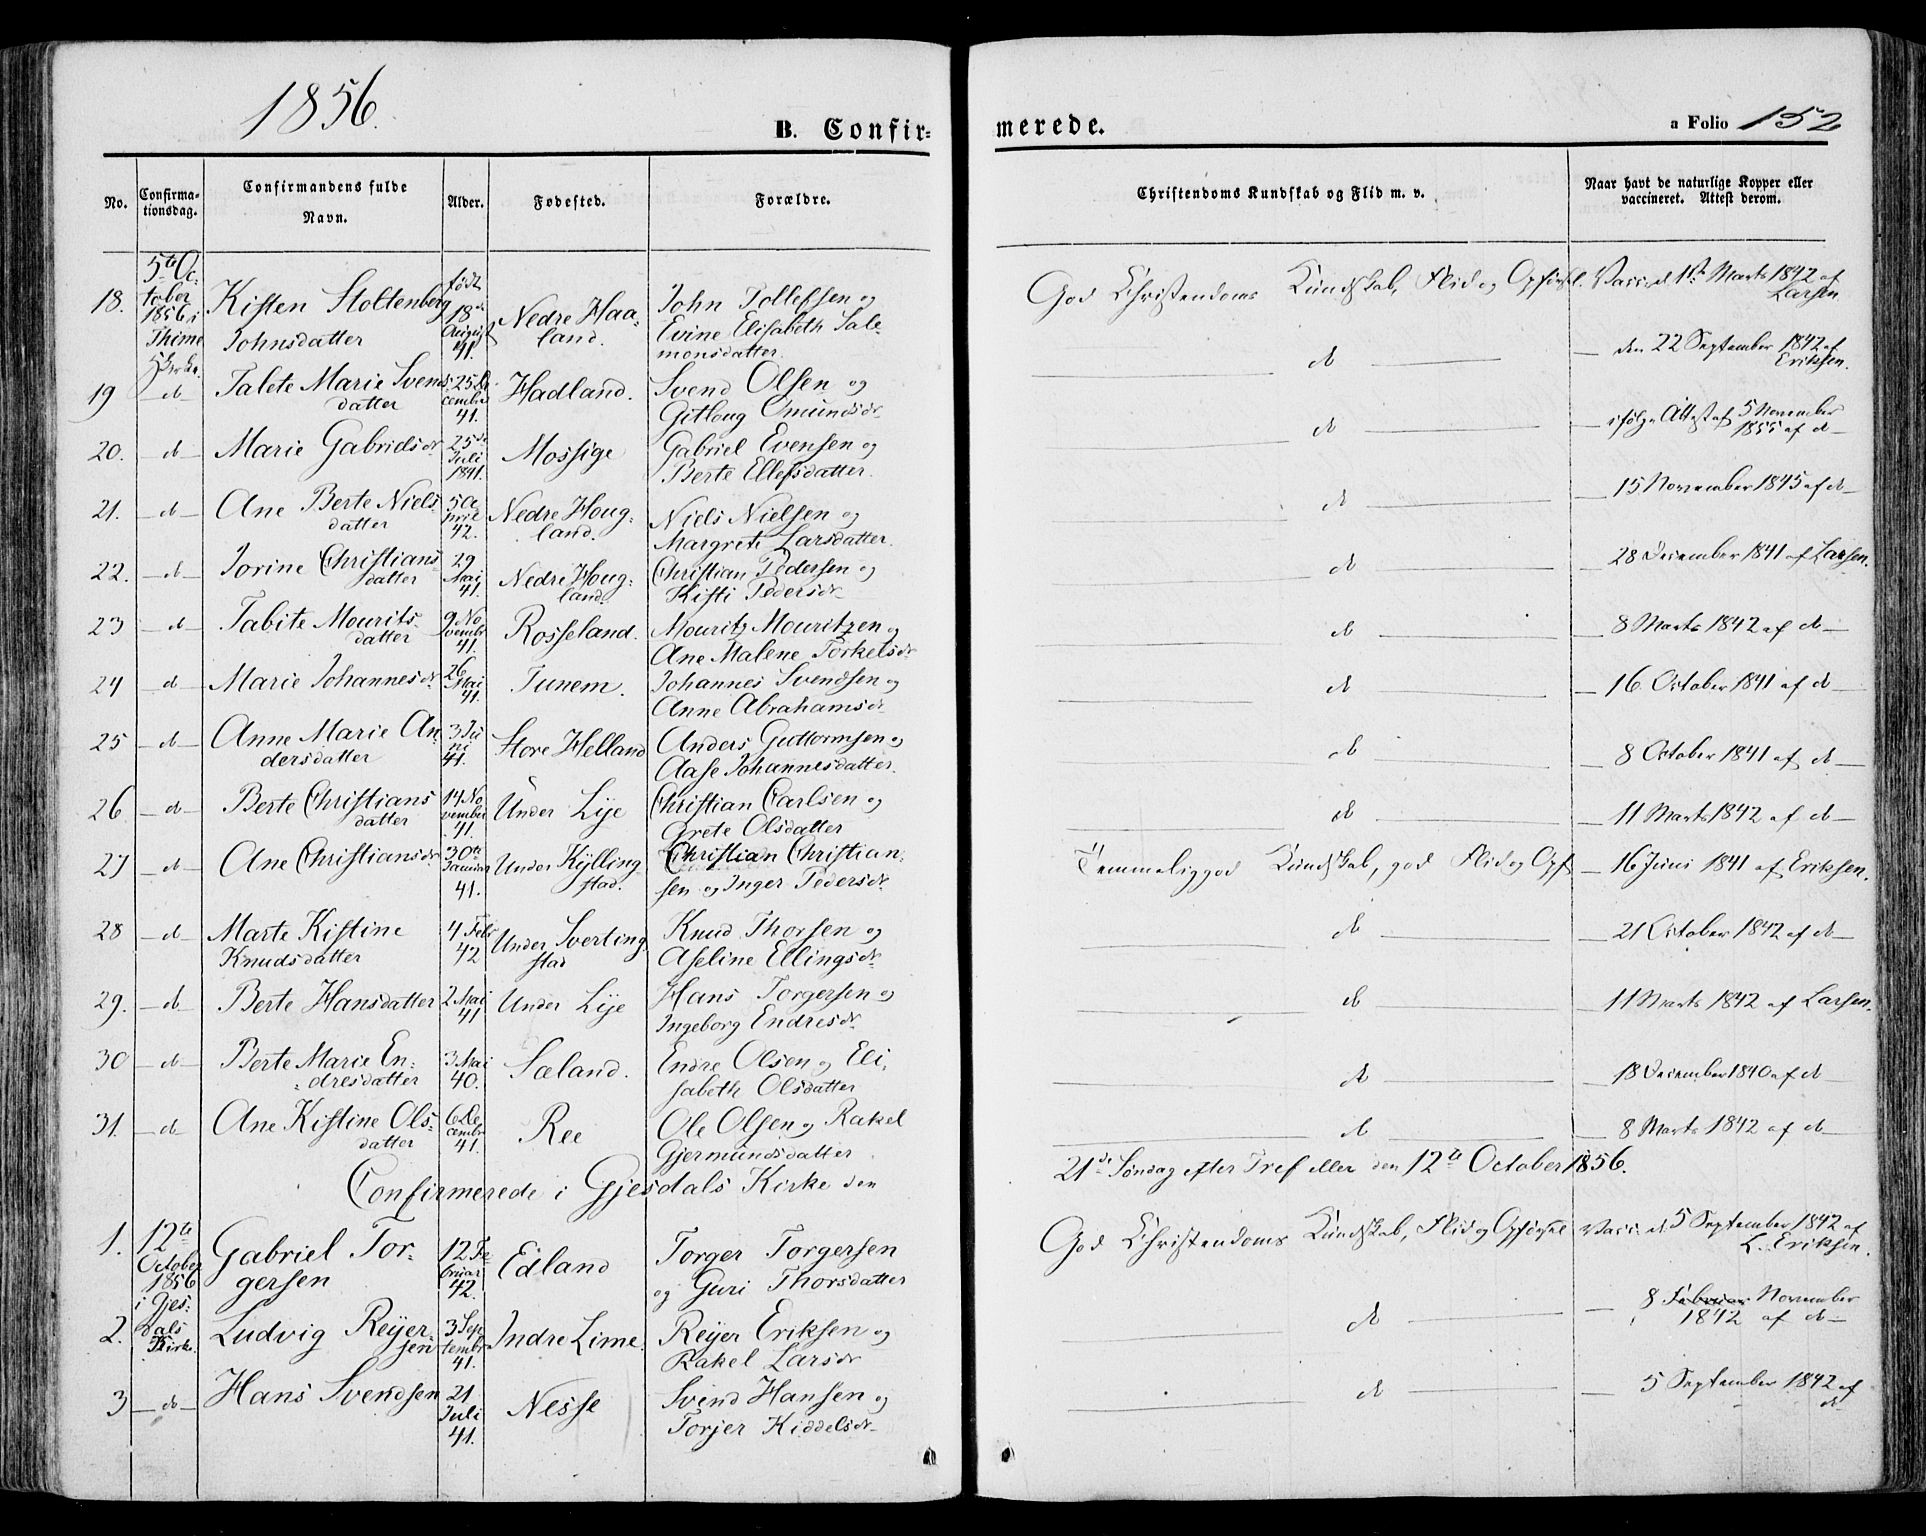 1856.
B. Confir=
merede.
a Folio 152
No.
Confirma-
tionsdag.
Confirmandens fulde
Navn.
Alder.
Fødested.
Forældre.
Christendoms Kundskab og Flid m. v.
Naar havt de naturlige Kopper eller
vaccineret. Attest derom.
18. 5te Oc-
tober
1856 i
Thime
Kirke.
Kisten Stoltenberg
Johnsdatter
født
18de
August
41.
Nedre Haa-
land.
John Tollefsen og
Evine Elisabeth Sale-
monsdatter.
God Christendoms Kundskab, Flid og Opførsl.
Vacc. d 1st Marts 1842 af
Larsen
19 -d-
Talete Marie Svends-
datter
25 De
cember
41.
Hadland.
Svend Olsen og
Gitloug Omundsdr
d
den 22 September 1842 af
Eriksen.
20. -d-
Marie Gabrielsdr
25de
Juli
1841.
Mossige
Gabriel Evensen og
Berte Ellefsdatter.
d
ifølge Attest af 5 November
1855 af d
21. -d-
Ane Berte Niels
datter
5 A
pril
42.
Nedre Houg-
land.
Niels Nielsen og
Margrete Larsdatter.
d
15 November 1845 af d
22. -d-
Jorine Christians
datter
29
Mai
41.
Nedre Houg-
land.
Christian Pedersen og
Kisti Pedersdr
d
28 December 1841 af Larsen.
23 -d-
Tabite Mourits
datter
9 No
vembr
41.
Rosseland.
Mouritz Mouritzen og
Ane Malene Torkelsdr
d
8 Marts 1842 af d
24 -d-
Marie Johannesdr
26
Mai
41.
Tunem.
Johannes Svendsen og
Anne Abrahamsdr
d
16 October 1841 af d
25 -d-
Anne Marie An
dersdatter
3 Ju
ni
41.
Store Helland
Anders Guttormsen og
Aase Johannesdatter.
d
8 October 1841 af d
26 -d-
Berte Christians
datter
14 No
vember
41.
Under Lÿe
Christian Carlsen og
Grete Olsdatter
d
11 Marts 1842 af d
27 -d-
Ane Christiansdr
30te
Januar
41.
Under Kÿlling
stad.
Christian Christian-
sen og Inger Pedersdr
Temmelig god Kundskab, god Flid og Opf
16 Juni 1841 af Eriksen.
28 -d-
Marte Kistine
Knudsdatter
4 Feb
42
Under Sverting
stad
Knud Thorsen og
Aseline Ellingsdr
d
21 October 1842 af d
29. -d-
Berte Hansdatter
2 Mai
41
Under Lÿe
Hans Torgersen og
Ingeborg Endresdr
d
11 Marts 1842 af Larsen.
30 -d-
Berte Marie En-
dresdatter
3 Mai
40.
Sæland.
Endre Olsen og Eli-
sabeth Olsdatter
d
18 December 1840 af d
31. -d-
Ane Kistine Ols-
datter
6 De
cembr
41.
Ree
Ole Olsen og Rakel
Gjermundsdatter
d
8 Marts 1842 af d
Confirmerede i Gjesdals Kirke den
21de Søndag efter Tref eller den 12te October 1856.
1. 12te
October
1856
i Gjes-
dals
Kirke.
Gabriel Tor-
gersen
12 Fe-
bruar
42.
Edland
Torger Torgersen
og Guri Thorsdatter
God Christendoms Kundskab, Flid og Opførsel
Vacc. d 5 September 1842 af
L. Eriksen.
2.
Ludvig Reÿer-
sen
3 Sep
tembr
41.
Indre Lime.
Reÿer Eriksen og
Rakel Larsdr
d
8 Februar November
1842 af d
3 -d-
Hans Svendsen
21
Juli
41.
Nesse
Svend Hansen og
Torjer Kiddelsdr
d
5 September 1842 af
d